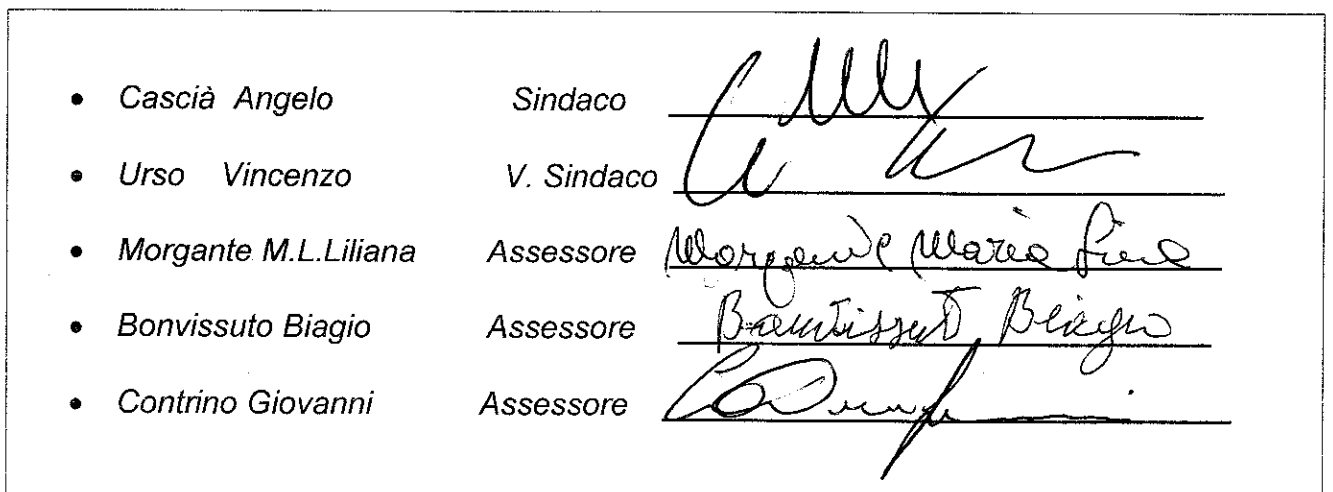 • Cascià Angelo Sindaco
• Urso Vincenzo V. Sindaco
• Morgante M.L.Liliana Assessore Morgante Maria
• Bonvissuto Biagio Assessore Bonvissuto Biagio
• Contrino Giovanni Assessore